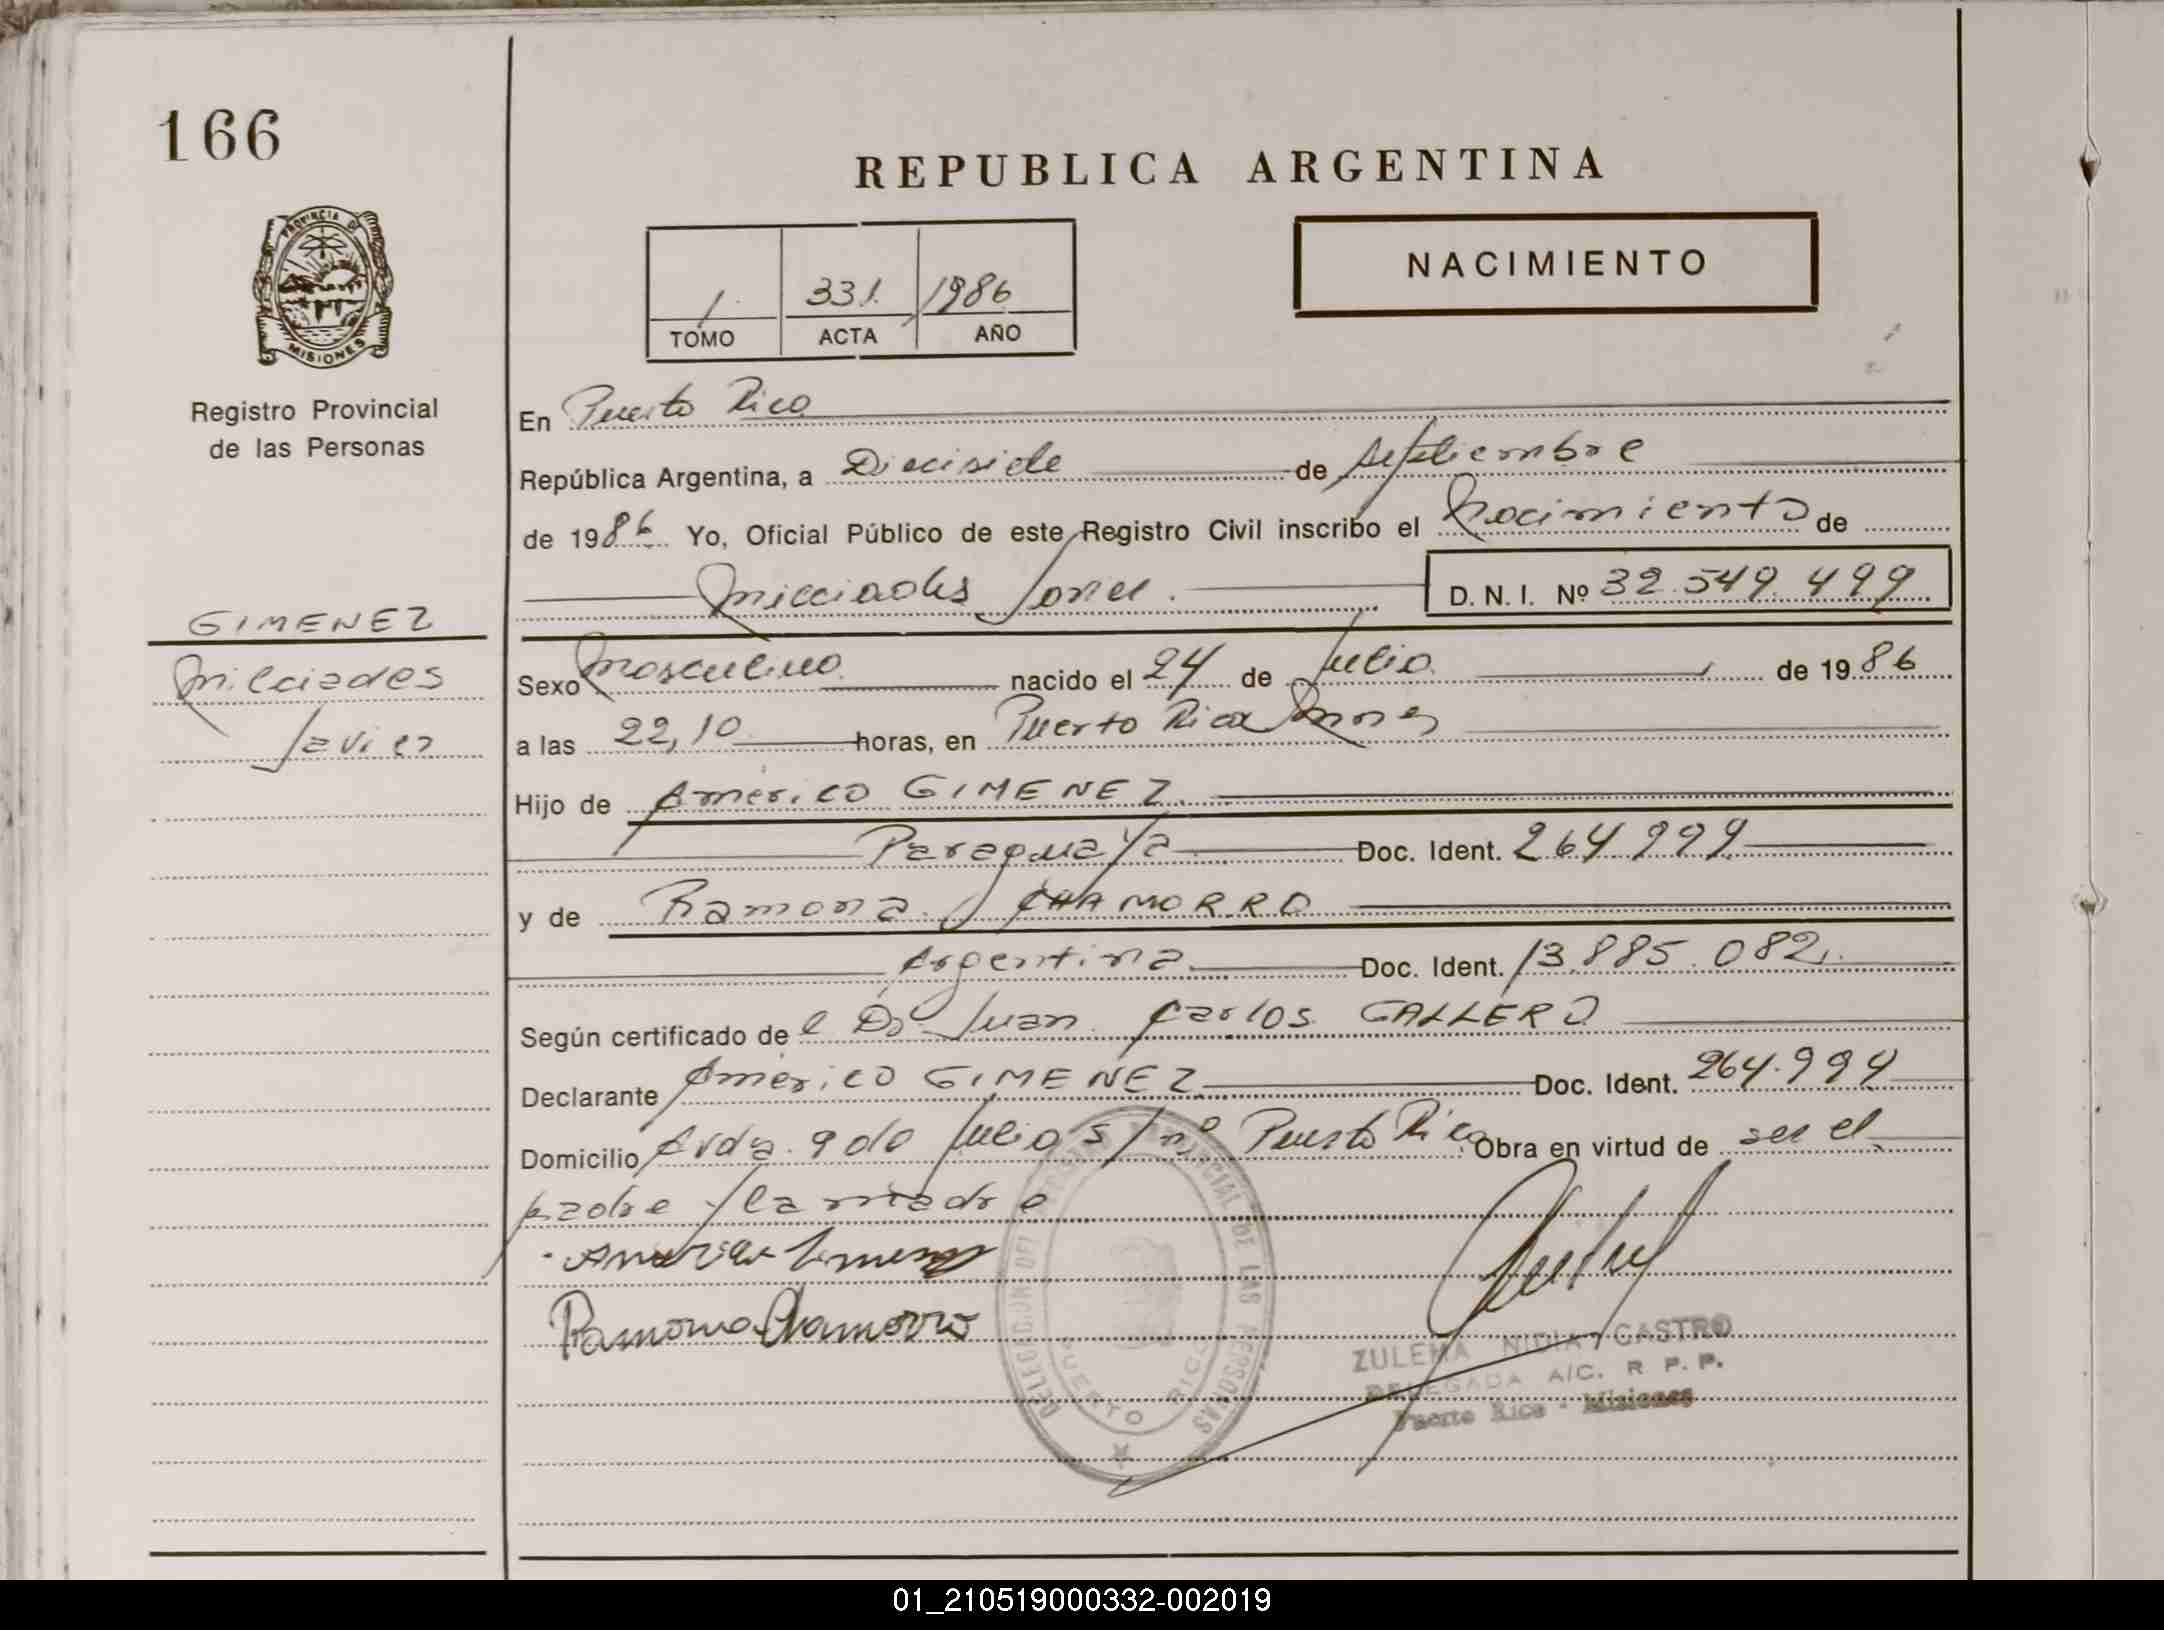 166
PROVINCIA DE
MISIONES
Registro Provincial
de las Personas
GIMENEZ
Milciades
Javier
REPUBLICA ARGENTINA
1 331 1986
TOMO ACTA AÑO
NACIMIENTO
En Puerto Rico
República Argentina, a Diecisiete de septiembre
de 1986 Yo, Oficial Público de este Registro Civil inscribo el Nacimiento de
Milciades Javier. D. N. I. Nº 32.549.499
Sexo Masculino nacido el 24 de Julio de 1986
a las 22,10 horas, en Puerto Rico Mnes
Hijo de Américo GIMENEZ
Paraguaya Doc. Ident. 264.999
y de Ramona CHAMORRO
Argentina Doc. Ident. 13.885.082
Según certificado de l Dr. Juan Carlos GALLERO
Declarante Américo GIMENEZ Doc. Ident. 264.999
Domicilio Avda. 9 de Julio s/nº Puerto Rico Obra en virtud de ser el
padre y la madre
Ramona Chamorro
DELEGACION DEL REGISTRO PROVINCIAL DE LAS PERSONAS
PUERTO RICO
ZULEMA NIDIA CASTRO
DELEGADA A/C. R P. P.
Puerto Rico - Misiones
01_210519000332-002019